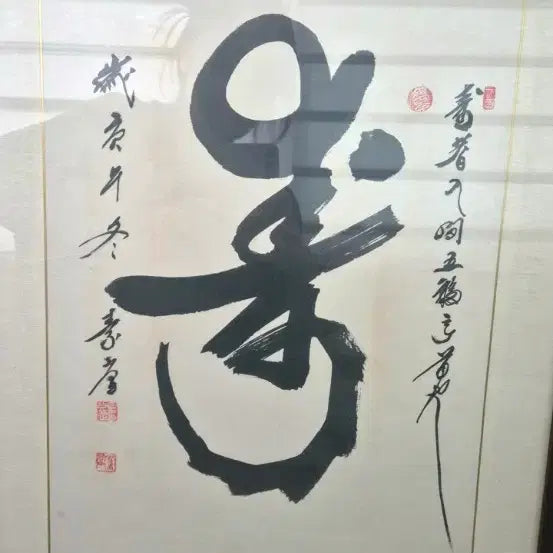 壽者人間五福之首也
壽
歲庚午冬 素